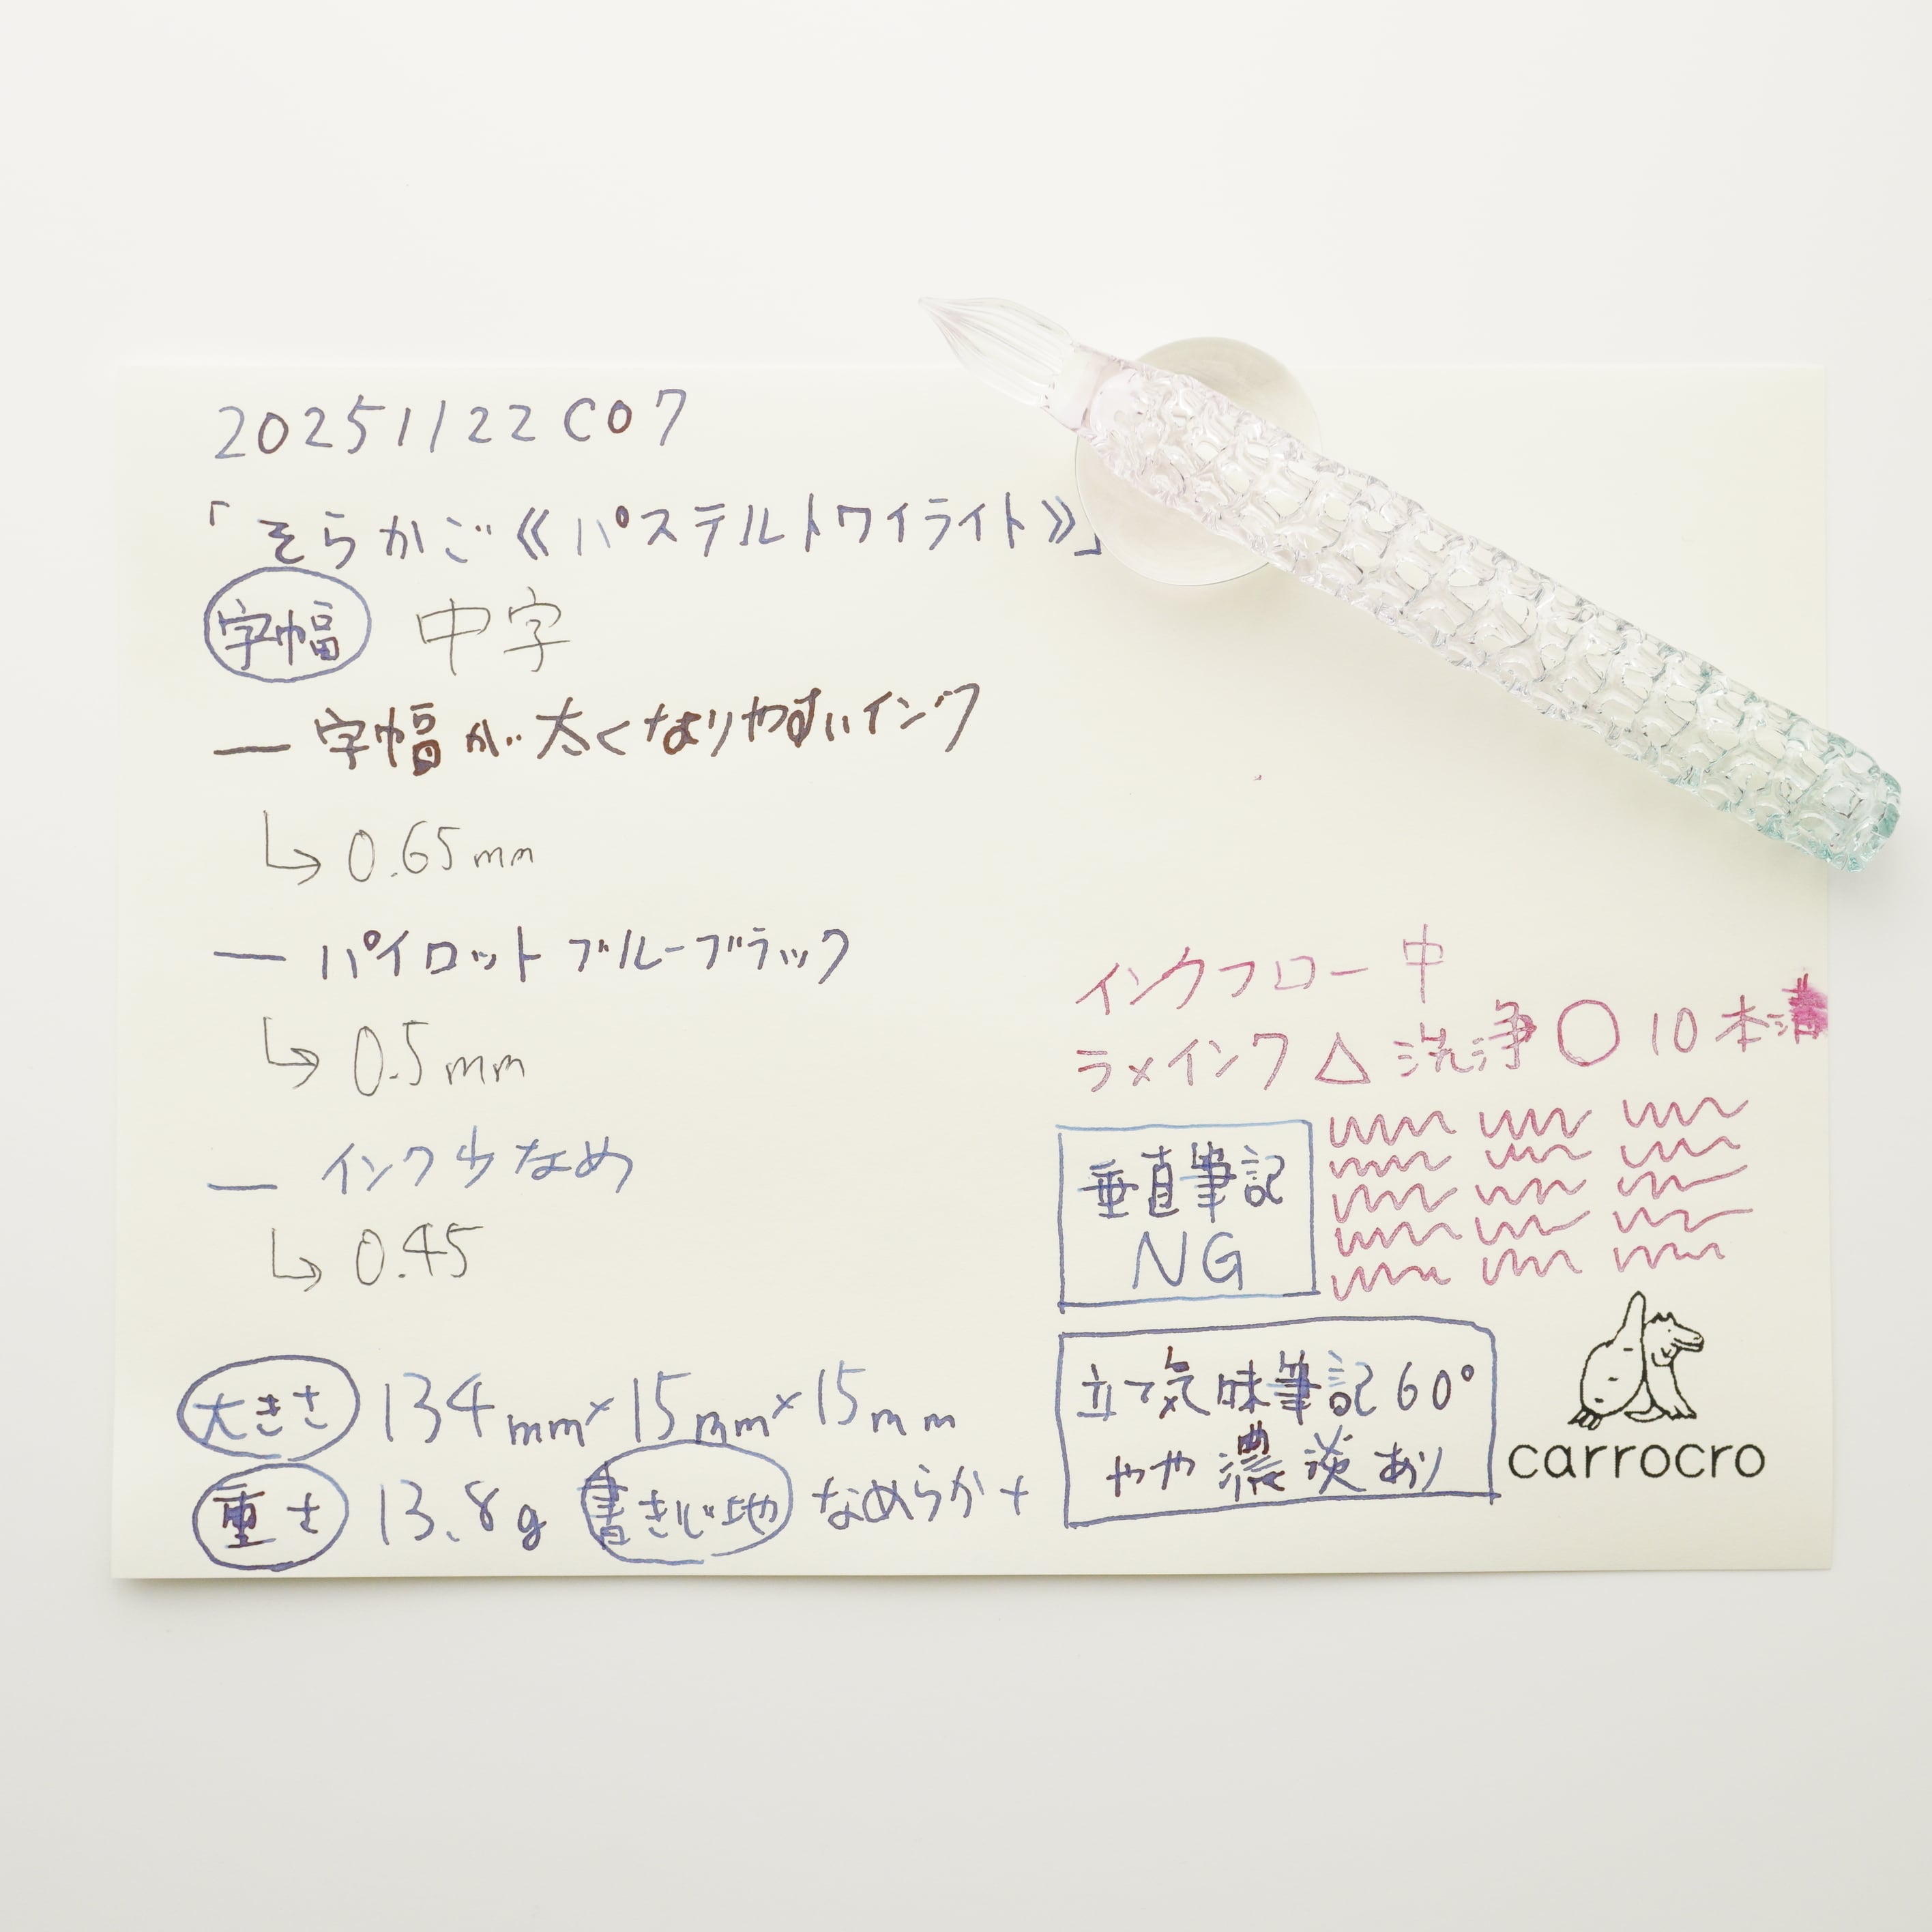 20251122C07
「そらかご《パステルトワイライト》」
字幅 中字
― 字幅が太くなりやすいインク
↳ 0.65mm
― パイロットブルーブラック
↳ 0.5mm
― インク少なめ
↳ 0.45
大きさ 134mm×15mm×15mm
重さ 13.8g 書き心地 なめらか+
インクフロー 中
ラメインク △ 洗浄 ○ 10本溝
垂直筆記
NG
立て気味筆記60°
やや濃淡あり
carrocro